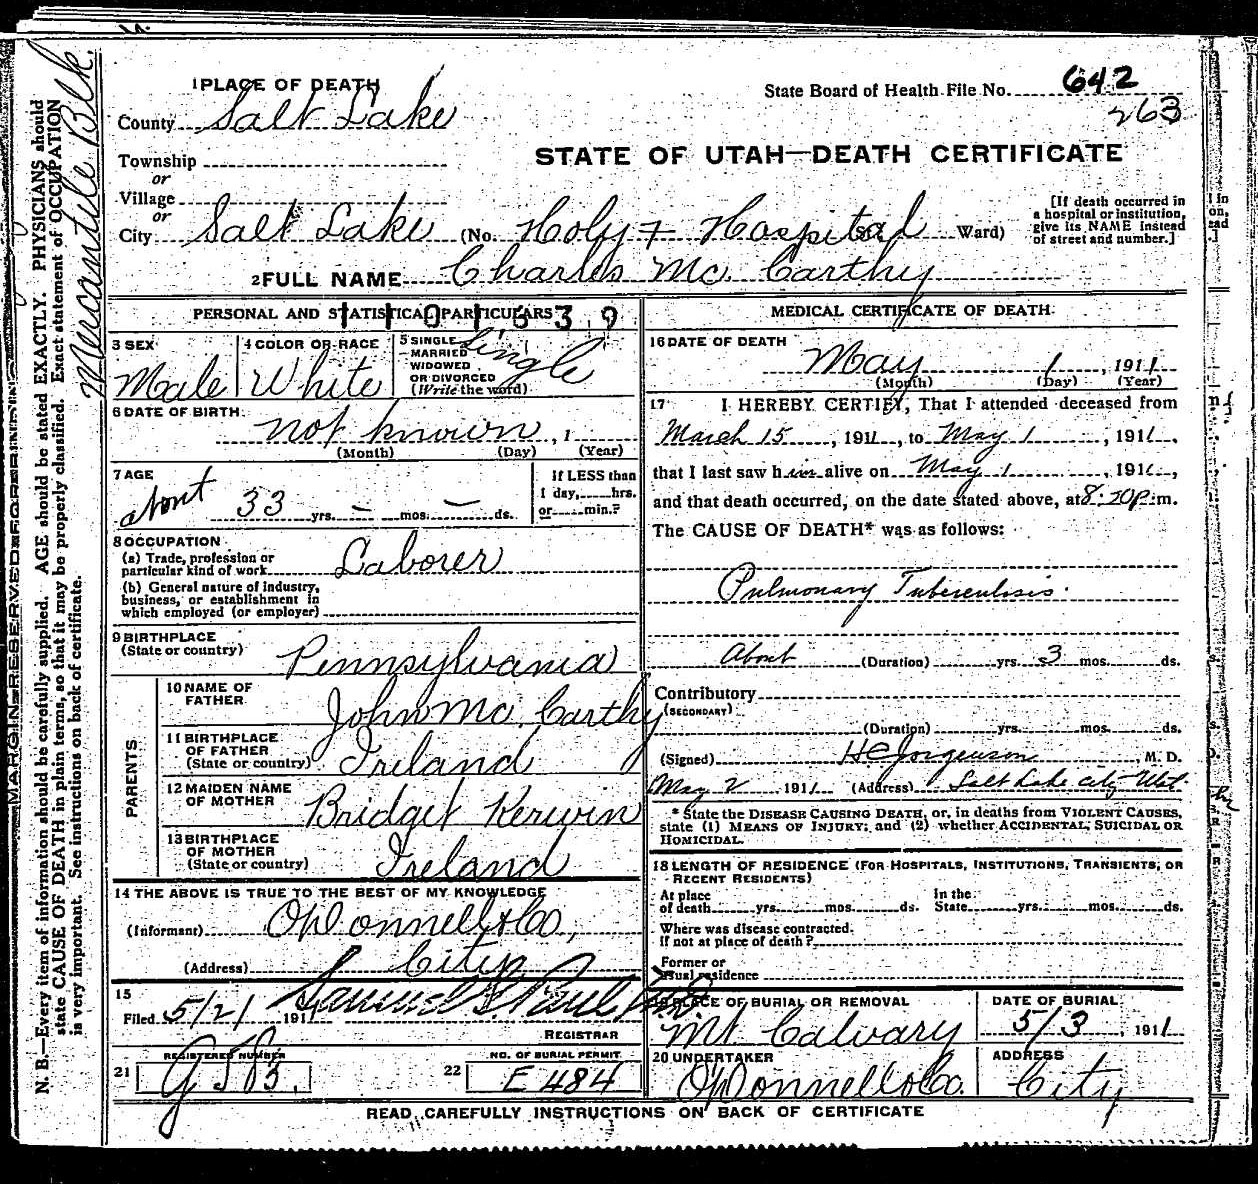 1 PLACE OF DEATH
State Board of Health File No. 642
263
County Salt Lake
STATE OF UTAH—DEATH CERTIFICATE
Township
or
Village
or
City Salt Lake (No. Holy + Hospital St. Ward)
[If death occurred in
a hospital or institution,
give its NAME instead
of street and number.]
2 FULL NAME Charles Mc. Carthy
PERSONAL AND STATISTICAL PARTICULARS
3 SEX
Male
4 COLOR OR RACE
White
5 SINGLE
MARRIED
WIDOWED
OR DIVORCED
(Write the word)
Single
6 DATE OF BIRTH
not known, 1
(Month) (Day) (Year)
7 AGE
about 33 yrs. — mos. — ds.
If LESS than
1 day, hrs.
or min.?
8 OCCUPATION
(a) Trade, profession or
particular kind of work Laborer
(b) General nature of industry,
business, or establishment in
which employed (or employer)
9 BIRTHPLACE
(State or country) Pennsylvania
PARENTS
10 NAME OF
FATHER
John Mc. Carthy
11 BIRTHPLACE
OF FATHER
(State or country) Ireland
12 MAIDEN NAME
OF MOTHER
Bridget Kerwin
13 BIRTHPLACE
OF MOTHER
(State or country) Ireland
14 THE ABOVE IS TRUE TO THE BEST OF MY KNOWLEDGE
(Informant) O'Donnell & Co,
(Address) City
15
Filed 5/2/ 1911
REGISTRAR
21 REGISTERED NUMBER
22 NO. OF BURIAL PERMIT
E 484
MEDICAL CERTIFICATE OF DEATH
16 DATE OF DEATH
May 1, 1911
(Month) (Day) (Year)
17 I HEREBY CERTIFY, That I attended deceased from
March 15, 1911, to May 1, 1911,
that I last saw him alive on May 1, 191,
and that death occurred, on the date stated above, at 8:20 p.m.
The CAUSE OF DEATH* was as follows:
Pulmonary Tuberculosis.
About (Duration) yrs. 3 mos. ds.
Contributory
(SECONDARY)
(Duration) yrs. mos. ds.
(Signed) M. D.
May 2 1911 (Address) Salt Lake City Ut
* State the DISEASE CAUSING DEATH, or, in deaths from VIOLENT CAUSES,
state (1) MEANS OF INJURY; and (2) whether ACCIDENTAL, SUICIDAL OR
HOMICIDAL.
18 LENGTH OF RESIDENCE (FOR HOSPITALS, INSTITUTIONS, TRANSIENTS, OR
RECENT RESIDENTS)
At place
of death yrs. mos. ds.
In the
State yrs. mos. ds.
Where was disease contracted,
if not at place of death?
Former or
usual residence
19 PLACE OF BURIAL OR REMOVAL
Mt Calvary
DATE OF BURIAL
5/3, 1911
20 UNDERTAKER
O'Donnell & Co.
ADDRESS
City
READ CAREFULLY INSTRUCTIONS ON BACK OF CERTIFICATE
MARGIN RESERVED FOR BINDING
N. B.—Every item of information should be carefully supplied. AGE should be stated EXACTLY. PHYSICIANS should
state CAUSE OF DEATH in plain terms, so that it may be properly classified. Exact statement of OCCUPATION
is very important. See instructions on back of certificate.
Mercantile Blk.